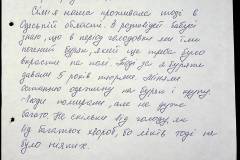 Сім'я наша проживала тоді в
Одеській області. З розповіді бабусі
знаю, що в період голодовки їли
печений буряк, який ще треба було
вкрасти на полі. Тоді за 2 буряки
давали 5 років тюрми. Міняли
останню одежину на буряк і крупу
Люди помирали, але не дуже
багато. Не скільки від голоду, як
від багатьох хвороб, бо ліків тоді не
було ніяких.